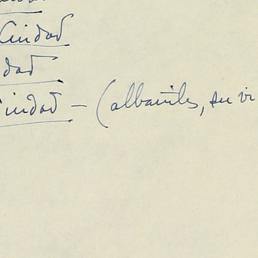 Ciudad
dad
Ciudad – (albañiles, su vi